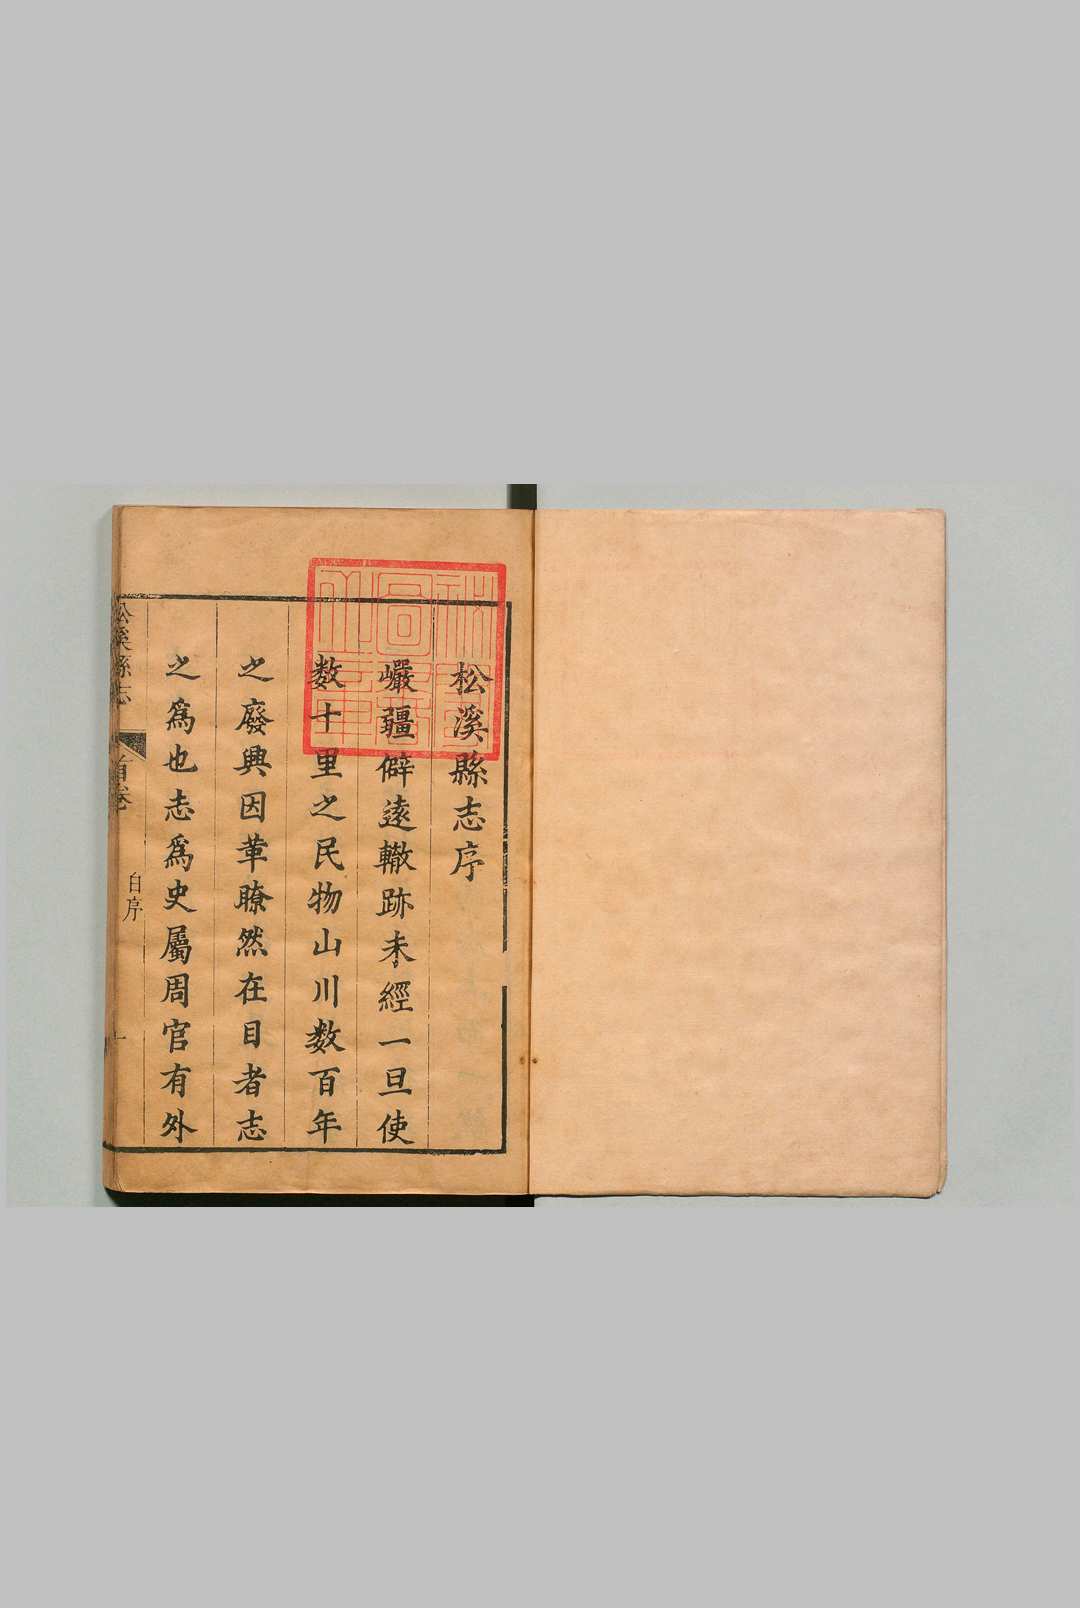 松溪縣志序
巗疆僻遠轍跡未經一旦使
数十里之民物山川数百年
之廢興因革瞭然在目者志
之爲也志爲史屬周官有外
松溪縣志
首卷
自序
一